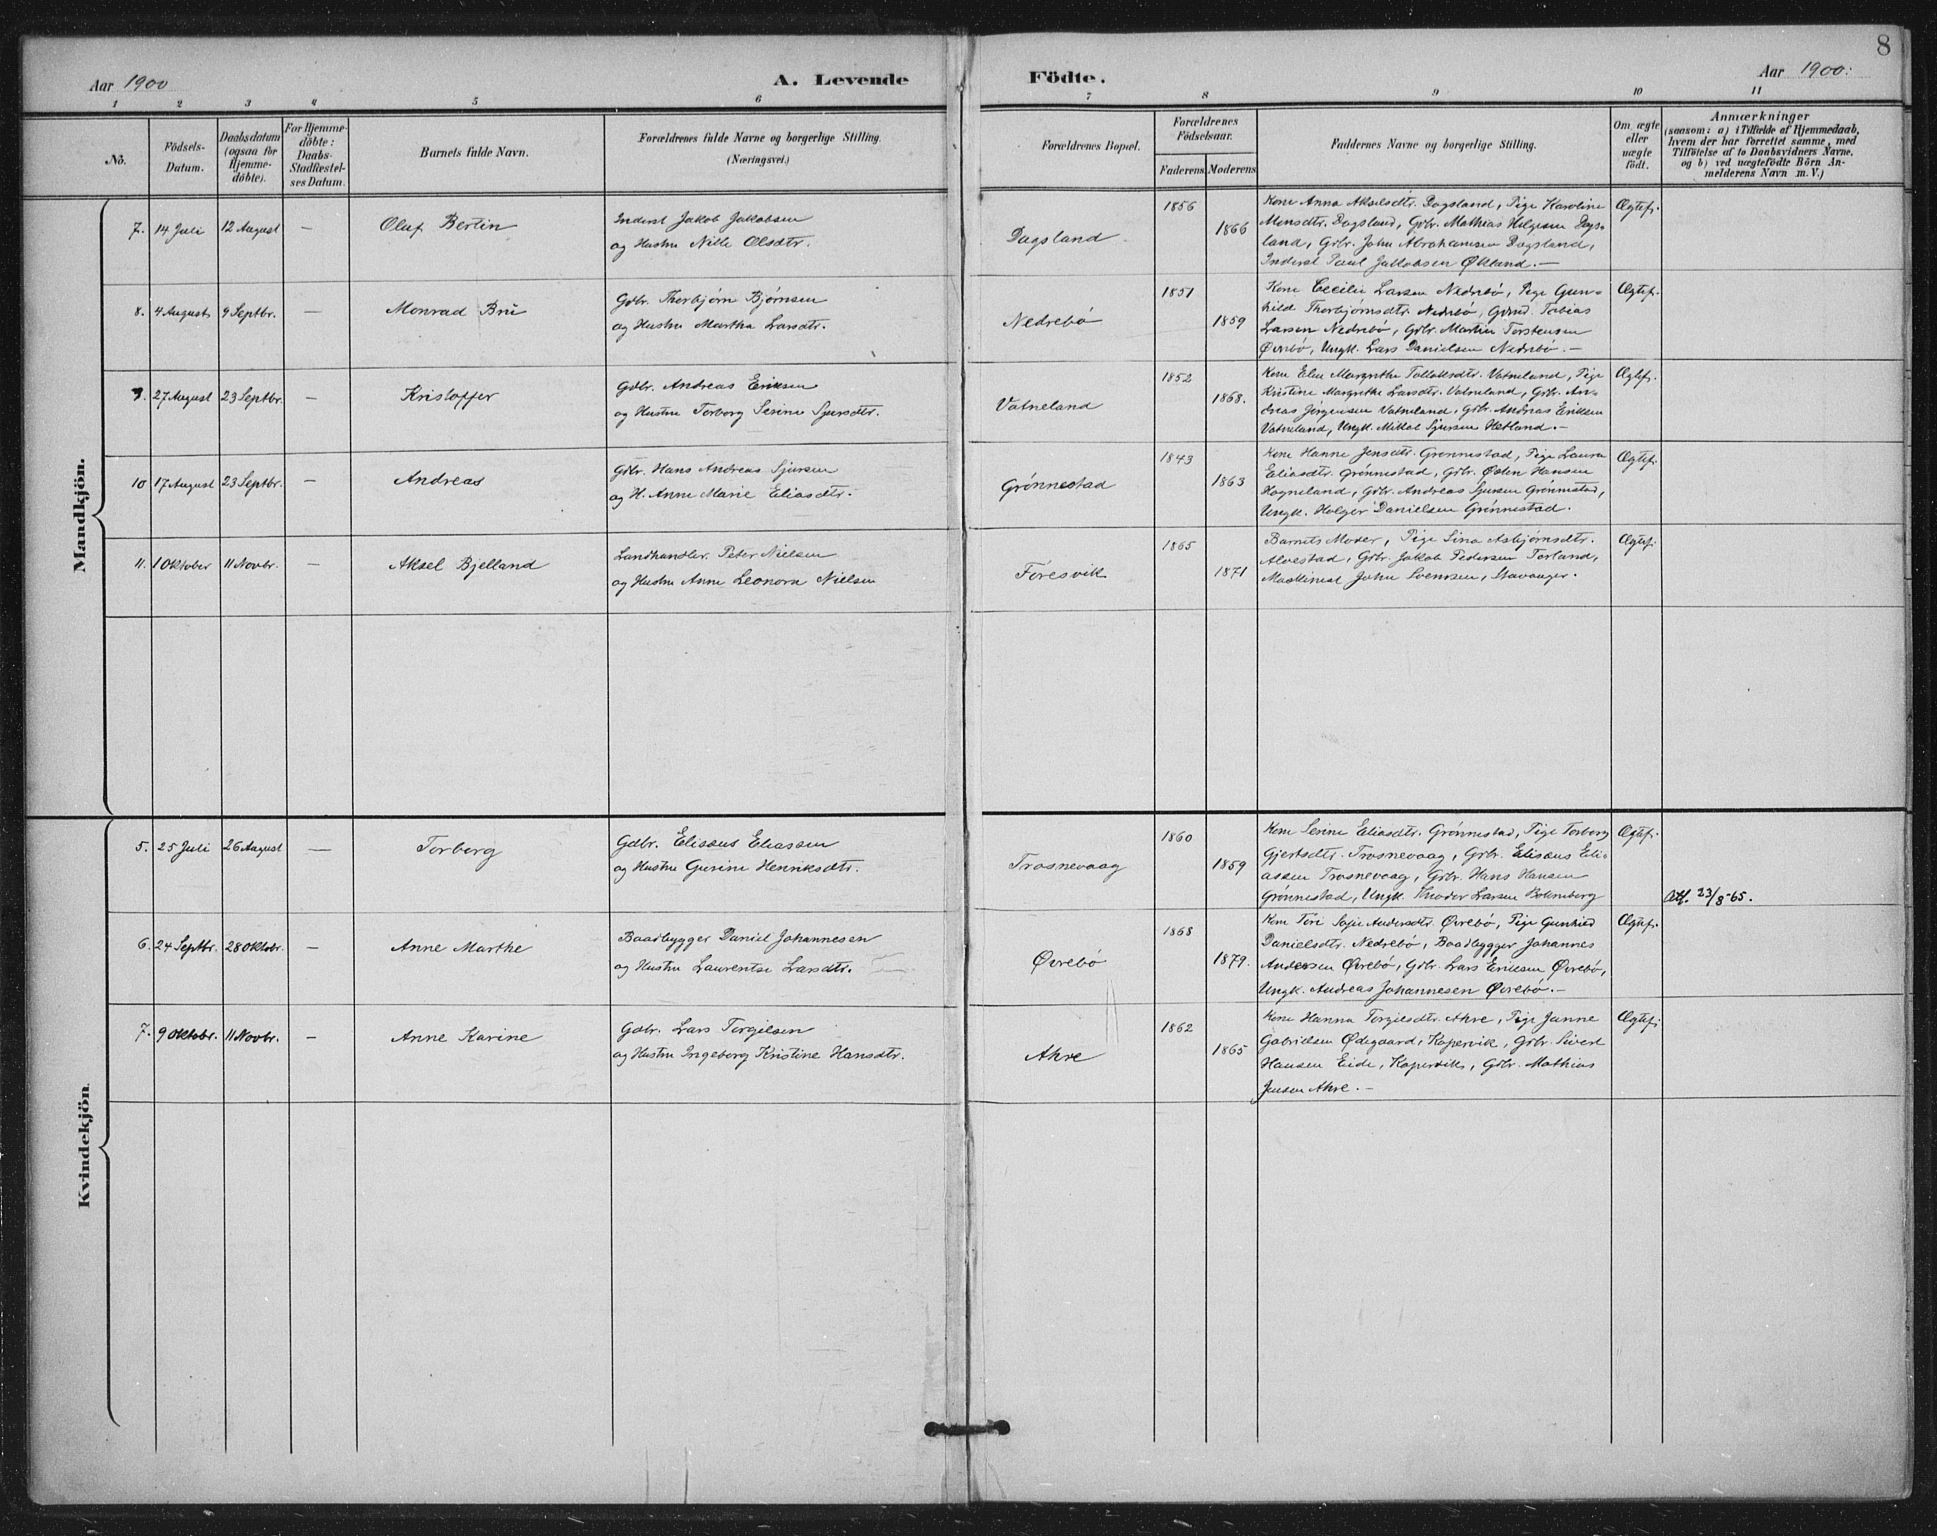 8
Aar 1900
A. Levende
Födte.
Aar 1900.
1 2 3 4 5 6 7 8 9 10 11
No.
Födsels-
Datum.
Daabsdatum
(ogsaa for
Hjemme-
döbte).
For Hjemme-
döbte:
Daabs-
Stadfæstel-
ses Datum.
Barnets fulde Navn.
Forældrenes fulde Navne og borgerlige Stilling.
(Næringsvei.)
Forældrenes Bopæl.
Forældrenes
Födselsaar.
Faderens Moderens
Faddernes Navne og borgerlige Stilling.
Om ægte
eller
uægte
födt.
Anmærkninger
(saasom: a) i Tilfælde af Hjemmedaab,
hvem der har forrettet samme, med
Tilföielse af to Daabsvidners Navne,
og b) ved uægtefödte Börn An-
melderens Navn m. V.)
Mandkjön.
7. 14 Juli 12 August — Oluf Bertin
Inderst Jakob Jakobsen
og Hustru Nille Olsdtr.
Dagsland
1856
1866
Kone Anna Akselsdtr. Dagsland, Pige Karoline
Monsdtr. Dagsland, Gbr. Mathias Helgesen Dags-
land, Gbr. John Abrahamsen Dagsland,
Inderst Paul Jakobsen Økland. —
Ægtef.
8. 4 August 9 Septbr. — Monrad Bru
Gdbr. Thorbjørn Bjørnsen
og Hustru Martha Larsdtr.
Nedrebö
1851
1859
Kone Cecilie Larsen Nedrebö, Pige Gun-
hild Thorbjørnsdtr. Nedrebö, Gmd. Tobias
Larsen Nedrebö, Gbr. Martin Torstensen
Øvrebö, Ungk. Lars Danielsen Nedrebö. —
Ægtef.
9. 27 August 23 Septbr. — Kristoffer
Gdbr. Andreas Eriksen
og Hustru Torborg Serine Sjursdtr.
Vatneland
1852
1868.
Kone Elen Margrethe Tollaksdtr. Vatneland, Pige
Kristine Margrethe Larsdtr. Vatneland, Gbr. An-
dreas Jörgensen Vatneland, Gbr. Andreas Eriksen
Vatneland, Ungk. Mikkel Sjursen Hetland. —
Ægtef.
10 17 August 23 Septbr. — Andreas
Gdbr. Hans Andreas Sjursen
og H. Anne Marie Eliasdtr.
Grönnestad
1843
1863
Kone Hanne Jensdtr. Grönnestad, Pige Laura
Eliasdtr. Grönnestad, Gbr. Østen Hansen
Hogneland, Gbr. Andreas Sjursen Grönnestad,
Ungk. Holger Danielsen Grönnestad.
Ægtef.
11. 1 Oktober 11 Novbr. — Aksel Bjelland
Landhandler Peter Nielsen
og Hustru Anne Leonora Nielsen
Föresvik
1865
1871
Barnets Moder, Pige Sina Asbjörnsdtr.
Alvestad, Gbr. Jakob Pedersen Torland,
Maskinist John Svensen, Stavanger.
Ægtef.
Kvindekjön.
5. 25 Juli 26 August — Torborg
Gdbr. Elisæus Eliassen
og Hustru Gurine Henriksdtr.
Trosnevaag
1860
1859
Kone Serine Eliasdtr. Grönnestad, Pige Torborg
Gjertsdtr. Trosnevaag, Gbr. Elisæus Eli-
assen Trosnevaag, Gbr. Hans Hansen
Grönnestad, Ungk. Larsen
Ægtef.
Att. 23/8-65.
6. 24 Septbr. 28 Oktobr. — Anne Marthe
Baadbygger Daniel Johannesen
og Hustru Laurentse Larsdtr.
Øvrebö
1868
1879.
Kone Tori Sofie Andersdtr. Øvrebö, Pige Gunhild
Danielsdtr. Nedrebö, Baadbygger Johannes
Andersen Øvrebö, Gbr. Lars Eriksen Øvrebö,
Ungk. Andreas Johannesen Øvrebö. —
Ægtef.
7. 9 Oktobr. 11 Novbr. — Anne Karine
Gdbr. Lars Torgilsen
og Hustru Ingeborg Kristine Hansdtr.
Ahre
1862
1865
Kone Hanna Torgilsdtr. Ahre, Pige Janne
Gabrielsen Ødegaard, Kopervik, Gbr. Sivert
Hansen Eide, Kopervik, Gbr. Mathias
Jensen Ahre. —
Ægtef.